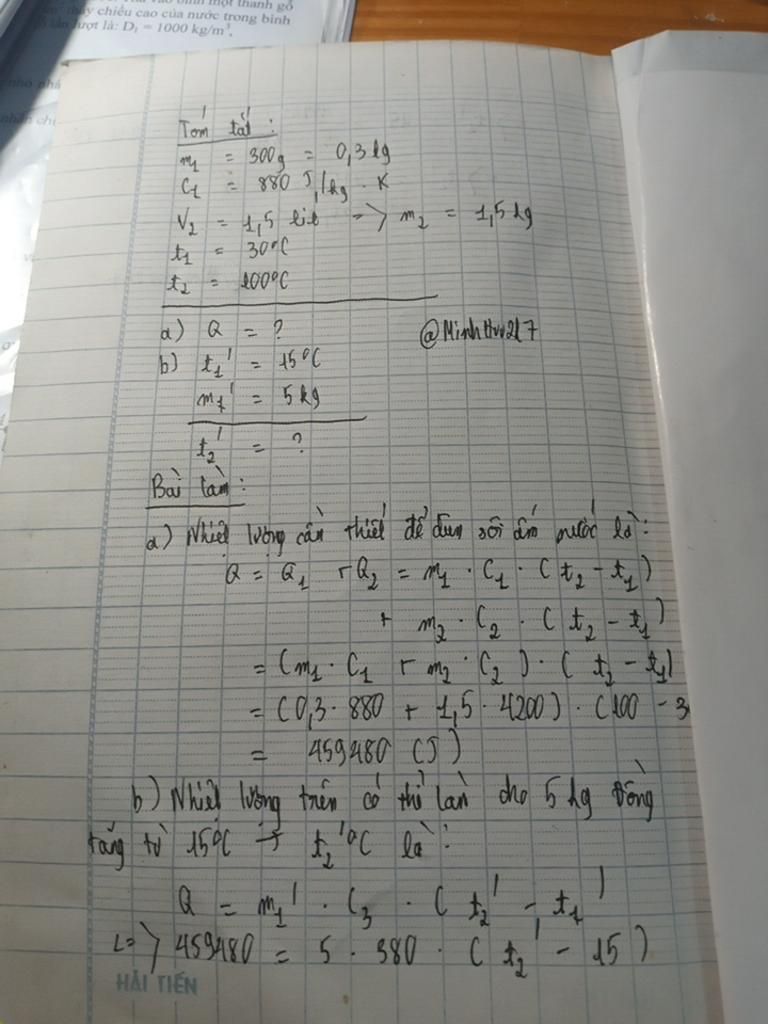 một thanh gỗ
thấy chiều cao của nước trong bình
lượt là: D₁ = 1000 kg/m³.
Tóm tắt :
m₁ = 300g = 0,3 kg
C₁ = 880 J/kg . K
V₂ = 1,5 lít => m₂ = 1,5 kg
t₁ = 30°C
t₂ = 100°C
a) Q = ?
@MinhHuu217
b) t₁' = 15°C
m₁' = 5 kg
t₂' = ?
Bài làm :
a) Nhiệt lượng cần thiết để đun sôi ấm nước là :
Q = Q₁ + Q₂ = m₁ . C₁ . ( t₂ - t₁ )
+ m₂ . C₂ . ( t₂ - t₁ )
= ( m₁ . C₁ + m₂ . C₂ ) . ( t₂ - t₁ )
= ( 0,3 . 880 + 1,5 . 4200 ) . ( 100 - 3
= 459480 (J)
b) Nhiệt lượng trên có thể làm cho 5 kg đồng
tăng từ 15°C → t₂'°C là :
Q = m₁' . C₃ . ( t₂' - t₁' )
<=> 459480 = 5 . 380 . ( t₂' - 15 )
HẢI TIẾN